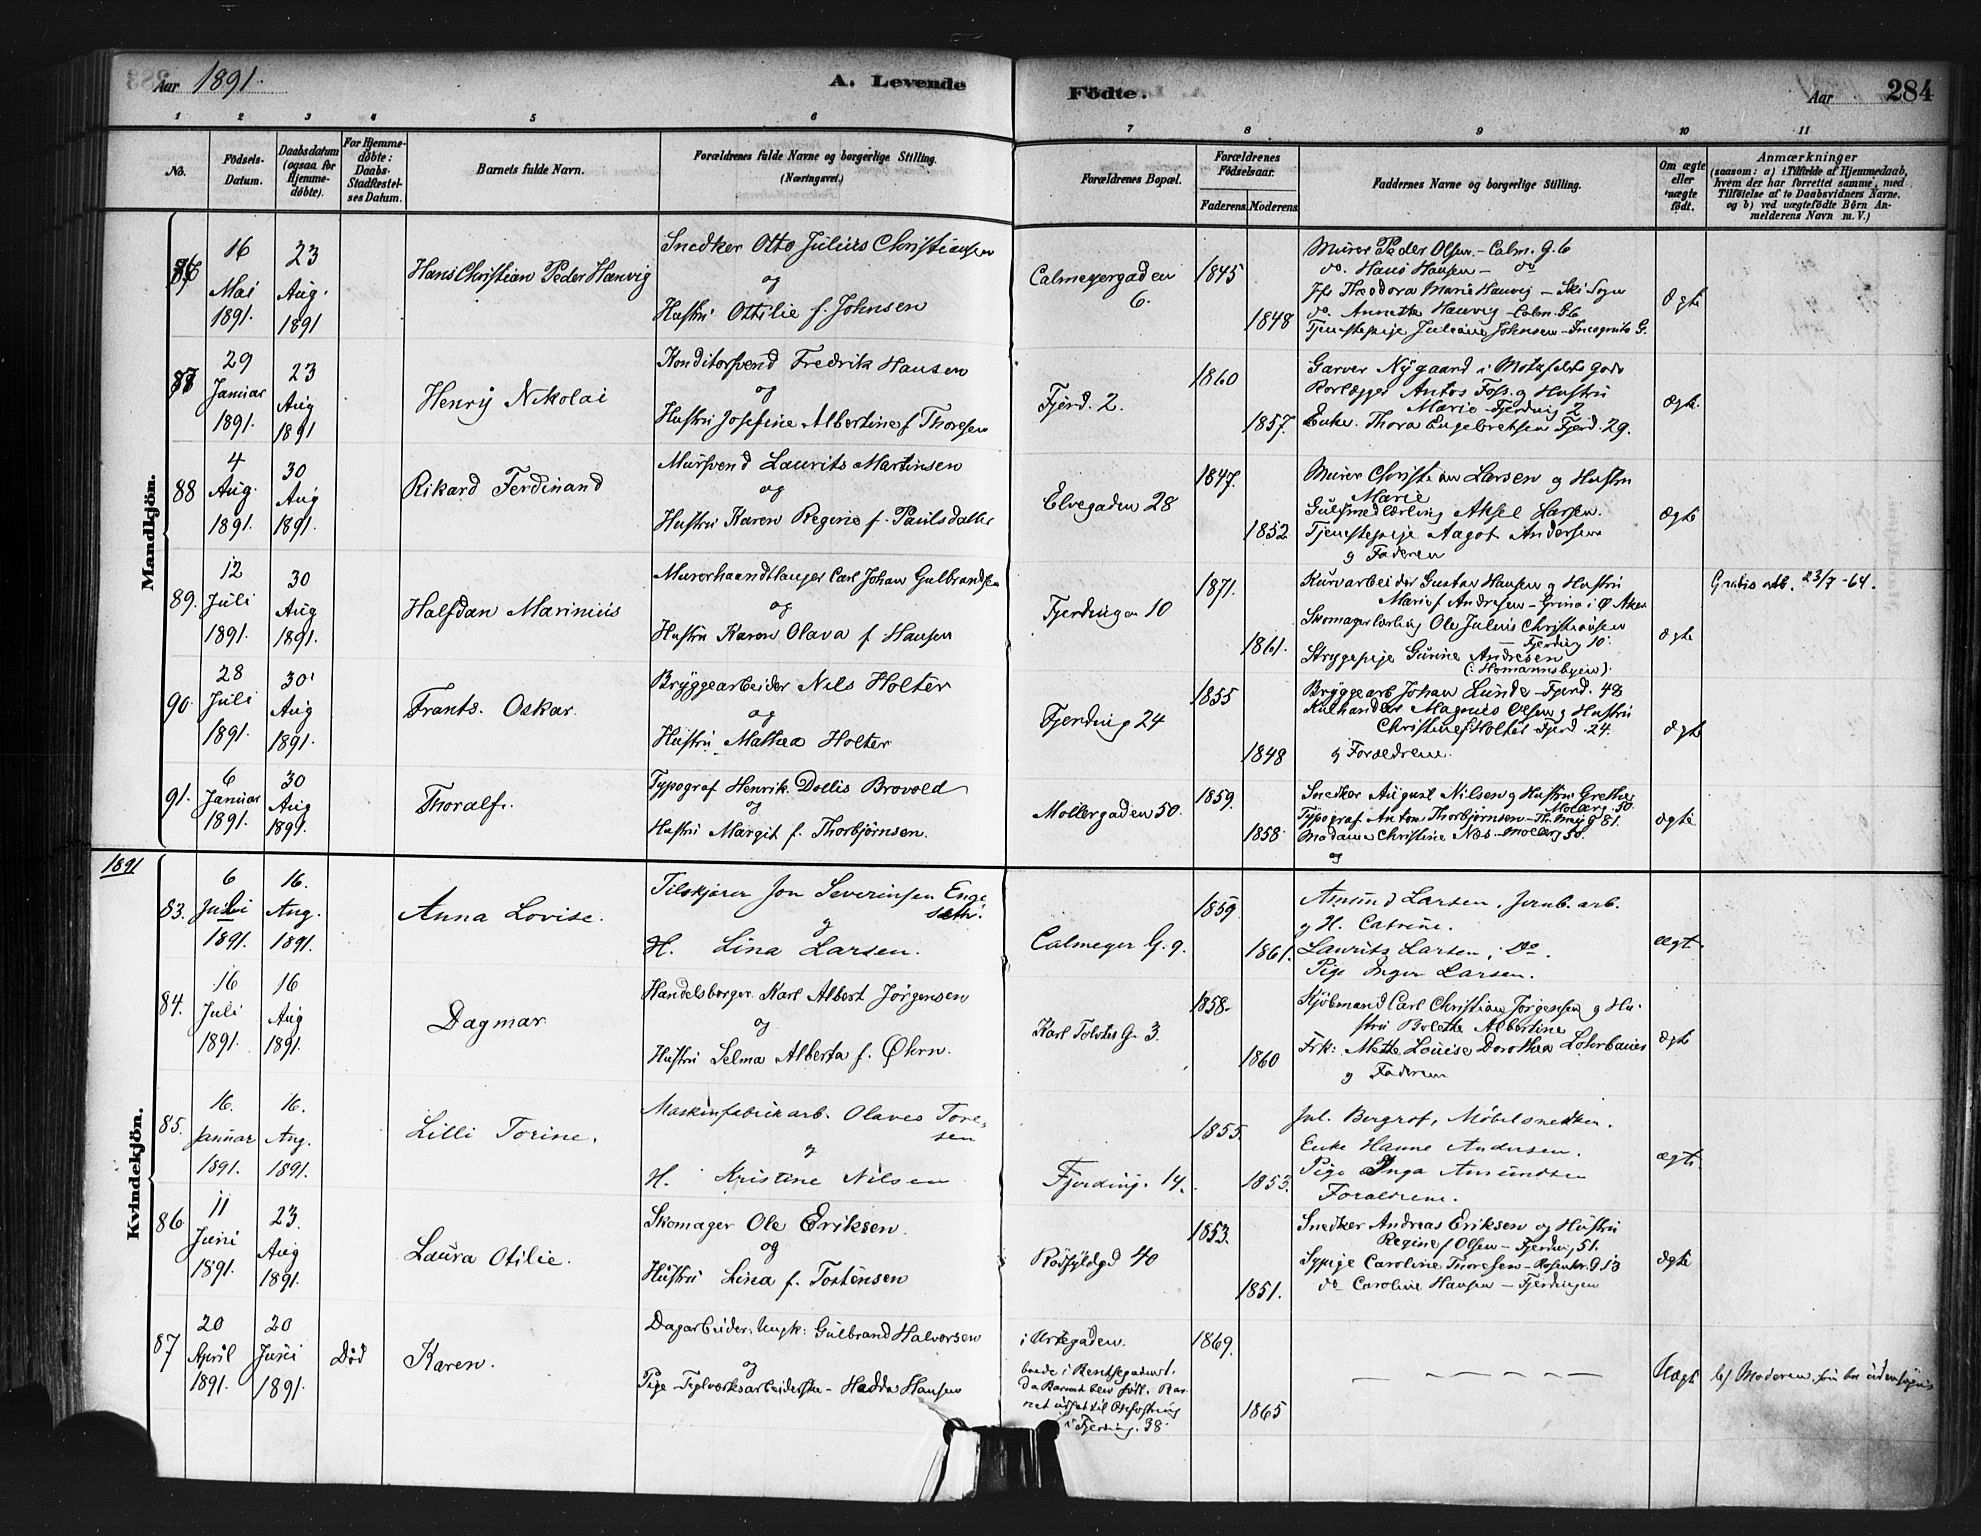 Aar 1891.
A. Levende
Födte.
Aar
284
1 2 3 4 5 6 7 8 9 10 11
No.
Födsels-Datum.
Daabsdatum (ogsaa for Hjemmedöbte).
For Hjemmedöbte: Daabs-Stadfæstelses Datum.
Barnets fulde Navn.
Forældrenes fulde Navne og borgerlige Stilling. (Næringsvei.)
Forældrenes Bopæl.
Forældrenes Födselsaar.
Faderens. Moderens.
Faddernes Navne og borgerlige Stilling.
Om ægte eller uægte födt.
Anmærkninger
(saasom: a) i Tilfælde af Hjemmedaab,
hvem der har forrettet samme, med
Tilföielse af to Daabsvidners Navne.
og b) ved uægtefödte Börn An-
melderens Navn m. V.)
Mandkjön.
86
16 Mai 1891.
23 Aug. 1891
Hans Christian Peder Hanvig
Snedker Otto Julius Christiansen
og
Hustru Ottilie f. Johnsen
Calmeyergaden 6.
1845
1848
Murer Peder Olsen - Calm. G. 6
do. Hans Hansen - do
Theodora Marie Hanvig - Ski Sogn
do. Annette Hanvig - Calm. G 6
Tjenestepige Juliane Johnsen - Incognito G.
Ægte
87
29 Januar 1891.
23 Aug 1891
Henry Nikolai
Konditorsvend Fredrik Hansen
og
Hustru Josefine Albertine f Thoresen
Fjerd. 2.
1860
1857.
Garver Nygaard i Motzfeldts Gade
Anton Foss og Hustru
Marie - Fjerding 2
Enke Thora Engebretsen Fjerd. 29.
Ægte
88
4 Aug. 1891.
30 Aug 1891.
Rikard Ferdinand
Mursvend Laurits Martinsen
og
Hustru Karen Regine f. Paulsdatter
Elvegaden 28
1847.
1852
Murer Christian Larsen og Hustru
Marie
Gulsmedlærling Aksel Larsen.
Tjenestepige Aagot Andersen
og Faderen
Ægte
89.
12 Juli 1891.
30 Aug 1891.
Halfdan Marinius
Murerhaandtlanger Carl Johan Gulbrandsen
og
Hustru Karen Olava f Hansen
Fjerdingen 10
1871.
1861.
Kurvarbeider Gustav Hansen og Hustru
Marie f Andresen - Grina i Ø Aker
Skomagerlærling Ole Julius Christiansen
- Fjerding 10.
Strygepige Gurine Andresen
(Homannsbyen).
Ægte
Gratis atb. 23/7 - 64.
90.
28 Juli 1891.
30 Aug 1891.
Frants Oskar
Bryggearbeider Nils Holter
og
Hustru Mathea Holter
Fjerding 24
1855
1848
Bryggearb Johan Lunde - Fjerd. 48
Kulhandler Magnus Olsen og Hustru
Christine f Holter Fjerd. 24.
og Forældrene.
Ægte
91.
6 Januar 1891.
30 Aug 1891.
Thoralf.
Typograf Henrik Dollis Brovold
og
Hustru Margit f. Thorbjörnsen.
Möllergaden 50.
1859.
1858
Snedker August Nilsen og Hustru Grethe
Möllerg. 50.
Typograf Anton Thorbjörnsen - Th. Myg 81.
Madame Christine Næs - Möllerg 50.
og
Ægte
1891
Kvindekjön.
83.
6 Juli 1891.
16. Aug. 1891.
Anna Lovise.
Tilskjærer Jon Severinsen Enge
seth.
og
H. Lina Larsen.
Calmeyer G. 9.
1859.
1861.
Amund Larsen, Jernb. arb.
og H. Catrine.
Laurits Larsen, Do.
Pige Inger Larsen.
Ægte.
84.
16 Juli 1891.
16 Aug 1891.
Dagmar
Handelsborger Karl Albert Jörgensen
og
Hustru Selma Alberta f. Øhrn.
Karl Tolvtes G. 3.
1858.
1860
Kjöbmand Carl Christian Jörgensen og Hu-
stru Bolette Albertine
Frk: Mette Louise Dorothea
og Faderen
Ægte
85.
16. Januar 1891.
16. Aug. 1891.
Lilli Torine.
Maskinfabrikarb. Olaves Tore-
sen
og
H. Kristine Nilsen
Fjerding. 14.
1855.
1853.
Jul. Bergrof, Möbelsnekker.
Enke Hanne Andersen.
Pige Inga Amundsen
Forældrene.
Ægte.
86
11 Juni 1891.
23. Aug 1891.
Laura Otilie.
Skomager Ole Eriksen.
og
Hustru Lina f. Tostensen
Rödfyldgd 40
1853.
1851.
Snedker Andreas Eriksen og Hustru
Regine f Olsen - Fjerding 51.
Sypige Caroline Thoresen - Rosenkr. G 13
do Caroline Hansen - Fjerdingen
Ægte
87
20 April 1891.
20 Juni 1891.
Död
Karen.
Dagarbeider: Ungk: Gulbrand Halvorsen
og
Pige - Tjelværksarbeiderske - Hadda Hansen
i Urtegaden.
boede i Rentsegadens
da Barnet blev födt. Bar-
net udsat til Opfostring
i Fjerding. 38
1869.
1865
Uægte
b) Moderen